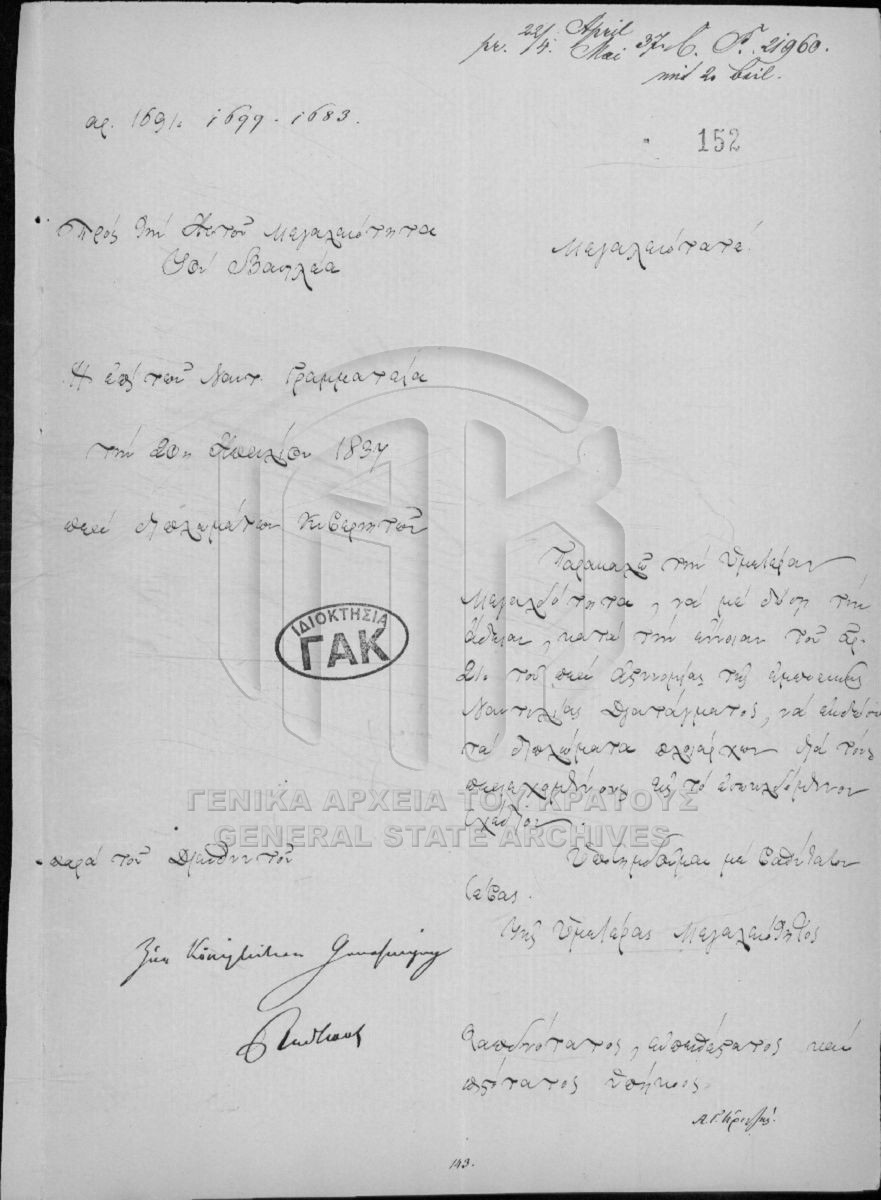 pr. 22/4. April Mai 37. C. N. 21960.
mit 2. Beil.
αρ. 1691. 1699 - 1683.
152
Πρός την Αυτού Μεγαλειότητα
Τον Βασιλέα
Μεγαλειότατε!
Η επί των Ναυτ. Γραμματεία
την 20η Απριλίου 1837
περί διπλωμάτων Κυβερνητών
Παρακαλώ την Υμετέραν
Μεγαλειότητα, να με δώση την
άδειαν, κατά την έννοιαν του αρ.
21. του περί αστυνομίας της εμπορικής
Ναυτιλίας Διατάγματος, να εκδώσω
τα διπλώματα πλοιάρχων διά τους
περιεχομένους εις το επικλειόμενον
σχέδιον.
ΙΔΙΟΚΤΗΣΙΑ
ΓΑΚ
ΓΕΝΙΚΑ ΑΡΧΕΙΑ ΤΟΥ ΚΡΑΤΟΥΣ
GENERAL STATE ARCHIVES
παρά του Διευθυντού
Υποσημειούμαι με βαθύτατον
σέβας.
Της Υμετέρας Μεγαλειότητος
Zur Königlichen Genehmigung
ταπεινότατος, ευπειθέστατος και
πιστότατος υπήκοος
Α. Γ. Κριεζής.
143.